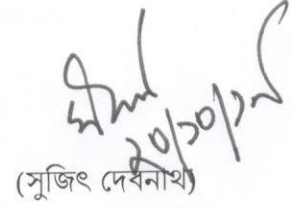 ২০/১০/১৯
(সুজিৎ দেবনাথ)